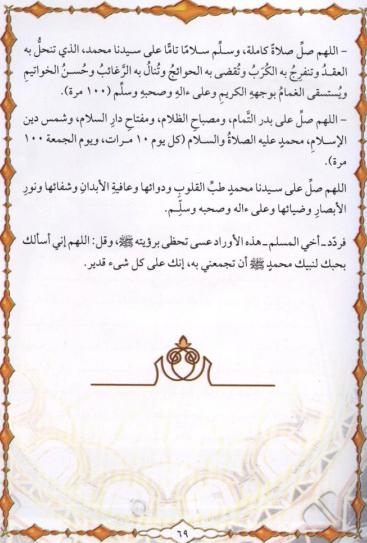 - اللهم صلِّ صلاةً كاملة، وسلِّم سلامًا تامًّا على سيدنا محمد، الذي تنحلُّ به
العقدُ وتنفرجُ به الكُرَبُ وتُقضى به الحوائجُ وتُنالُ به الرَّغائبُ وحُسنُ الخواتيمِ
ويُستسقى الغمامُ بوجههِ الكريمِ وعلى ءالهِ وصحبهِ وسلِّم (١٠٠ مرة).
- اللهم صلِّ على بدر التَّمام، ومصباحِ الظلام، ومفتاحِ دارِ السلام، وشمس دين
الإسلام، محمدٍ عليه الصلاةُ والسلام (كل يوم ١٠ مرات، ويوم الجمعة ١٠٠
مرة).
اللهم صلِّ على سيدنا محمدٍ طبِّ القلوبِ ودوائها وعافيةِ الأبدانِ وشفائها ونورِ
الأبصارِ وضيائها وعلى ءاله وصحبه وسلِّم.
فردِّد ـ أخي المسلم ـ هذه الأوراد عسى تحظى برؤيته ﷺ، وقل: اللهم إني أسألك
بحبك لنبيك محمدٍ ﷺ أن تجمعني به، إنك على كل شىء قدير.
٦٩